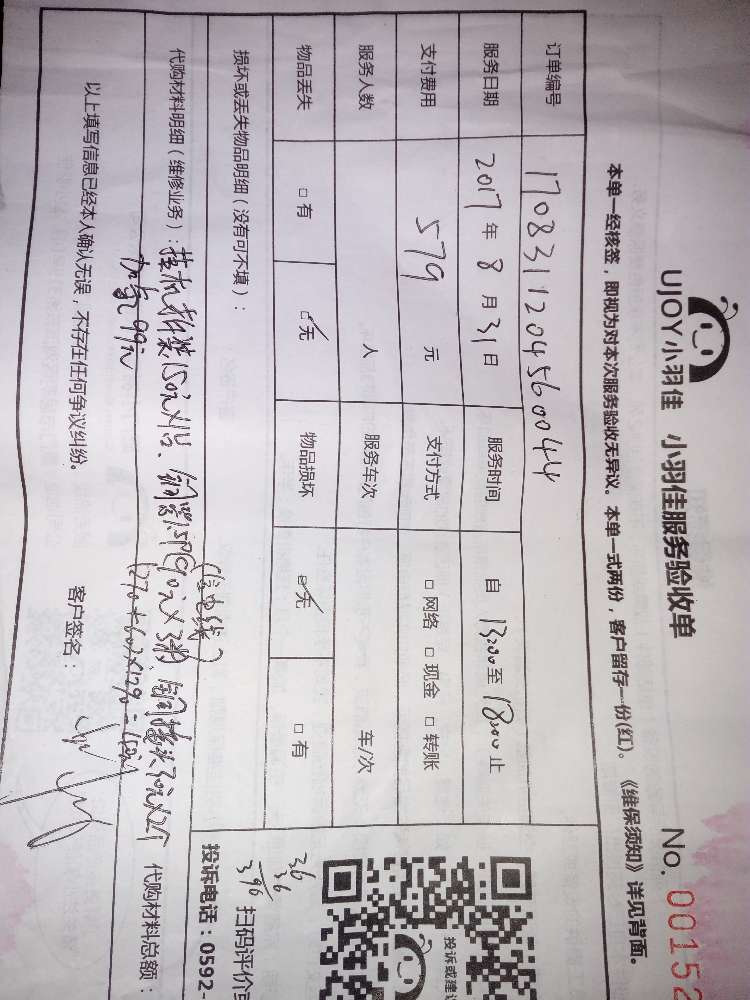 UJOY小羽佳 小羽佳服务验收单
No. 00152
本单一经核签，即视为对本次服务验收无异议。本单一式两份，客户留存一份(红)。《维保须知》详见背面。
订单编号 1708311204560044
服务日期 2017年8月31日 服务时间 自 13:00至 18:00止
支付费用 579 元 支付方式 □ 网络 □ 现金 □ 转账
服务人数 人 服务车次 车/次
物品丢失 □ 有 □无 物品损坏 □无 □ 有
投诉或建议
损坏或丢失物品明细（没有可不填）：
36
36
396
扫码评价
(含电线)
投诉电话：0592-
代购材料明细（维修业务）：挂机拆装150元×1台、铜管1.5P 90元×3米、铜接头30元×2个
代购材料总额：
加氟99元
(270+60)×
以上填写信息已经本人确认无误，不存在任何争议纠纷。 客户签名：